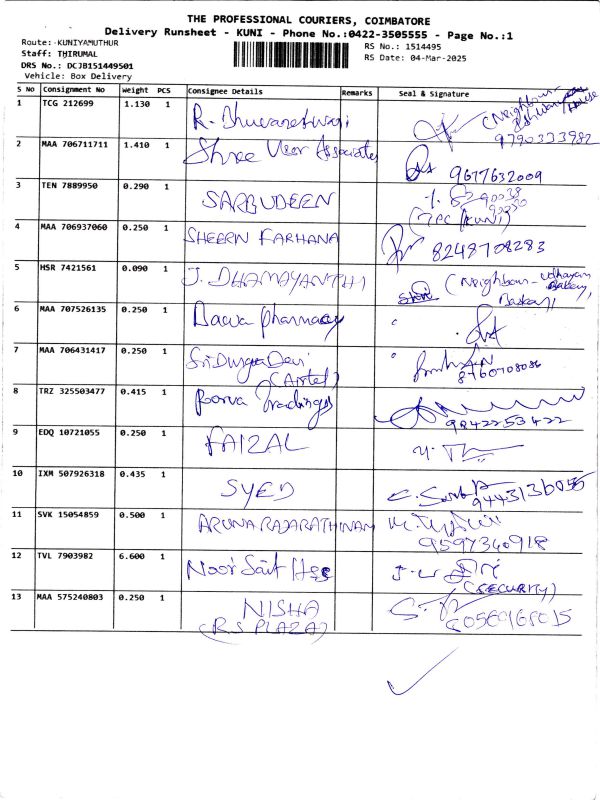 THE PROFESSIONAL COURIERS, COIMBATORE
Delivery Runsheet - KUNI - Phone No.:0422-3505555 - Page No.:1
Route: KUNIYAMUTHUR
Staff: THIRUMAL
DRS No.: DCJB151449501
Vehicle: Box Delivery
RS No.: 1514495
RS Date: 04-Mar-2025
S No Consignment No Weight PCS Consignee Details Remarks Seal & Signature
1 TCG 212699 1.130 1 R. Bhuvaneshwari (Neighbour- House
9790333982
2 MAA 706711711 1.410 1 Shree Veer Associates 9677632009
3 TEN 7889950 0.290 1 SARBUDEEN
(TPC KUNI)
4 MAA 706937060 0.250 1 SHEERIN FARHANA 8248708283
5 HSR 7421561 0.090 1 J. DHAMAYANTHI (Neighbour- Udhayam
Bakery)
6 MAA 707526135 0.250 1 Dawa pharmacy
7 MAA 706431417 0.250 1 Sri Durga Devi
(Airtel) 8760708086
8 TRZ 325503477 0.415 1 Poorva Tradings
9842253422
9 EDQ 10721055 0.250 1 FAIZAL
10 IXM 507926318 0.435 1 SYED
9443136055
11 SVK 15054859 0.500 1 ARUNA RAJARATHINAM
9597340918
12 TVL 7903982 6.600 1 Noor Sait Hse
(SECURITY)
13 MAA 575240803 0.250 1 NISHA
(R.S PLAZA)